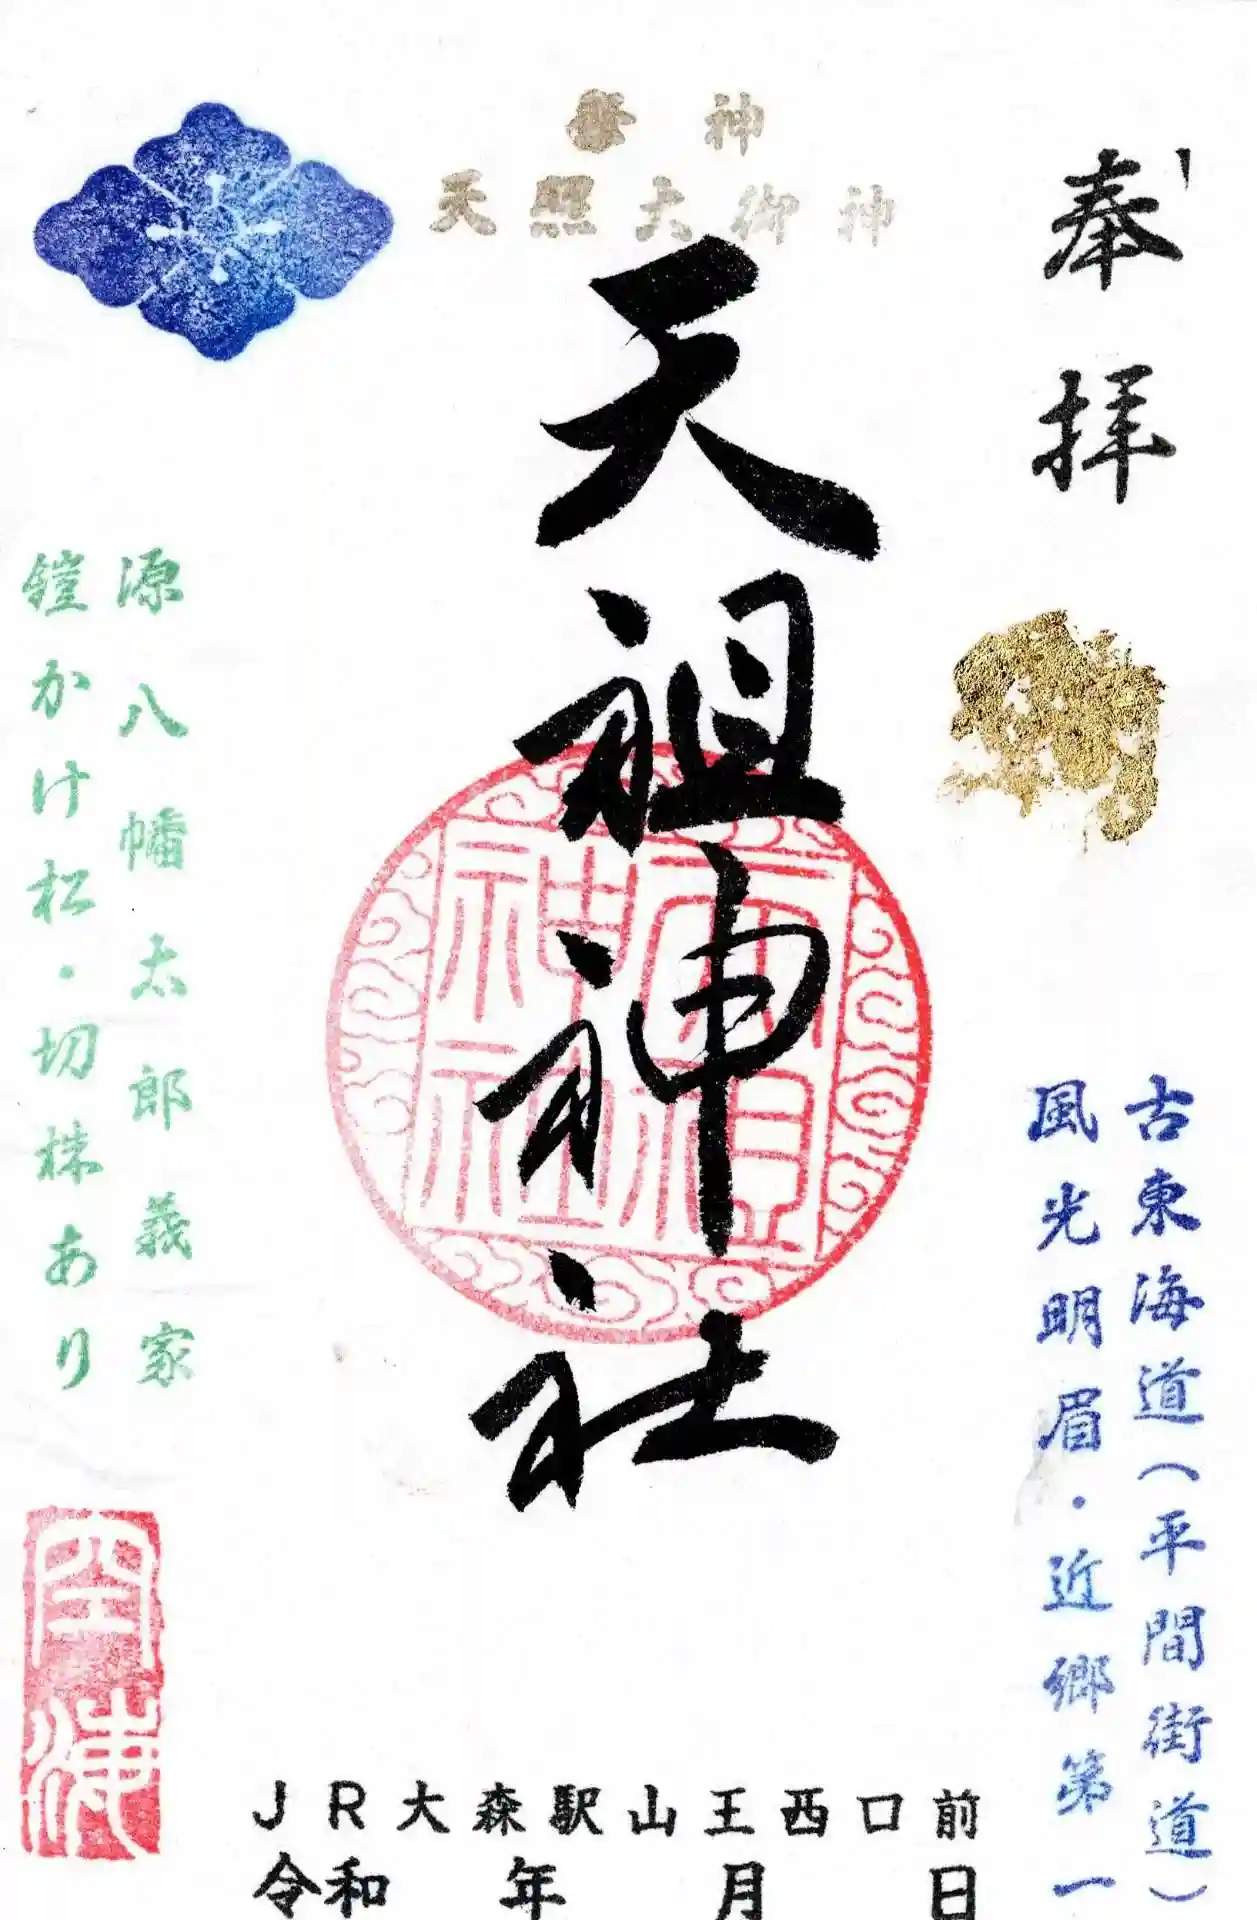 奉拝
古東海道(平間街道)
風光明眉・近郷第一
祭神
天照大御神
天祖神社
天祖神社
源八幡太郎義家
鎧かけ松・切株あり
JR大森駅山王西口前
令和 年 月 日